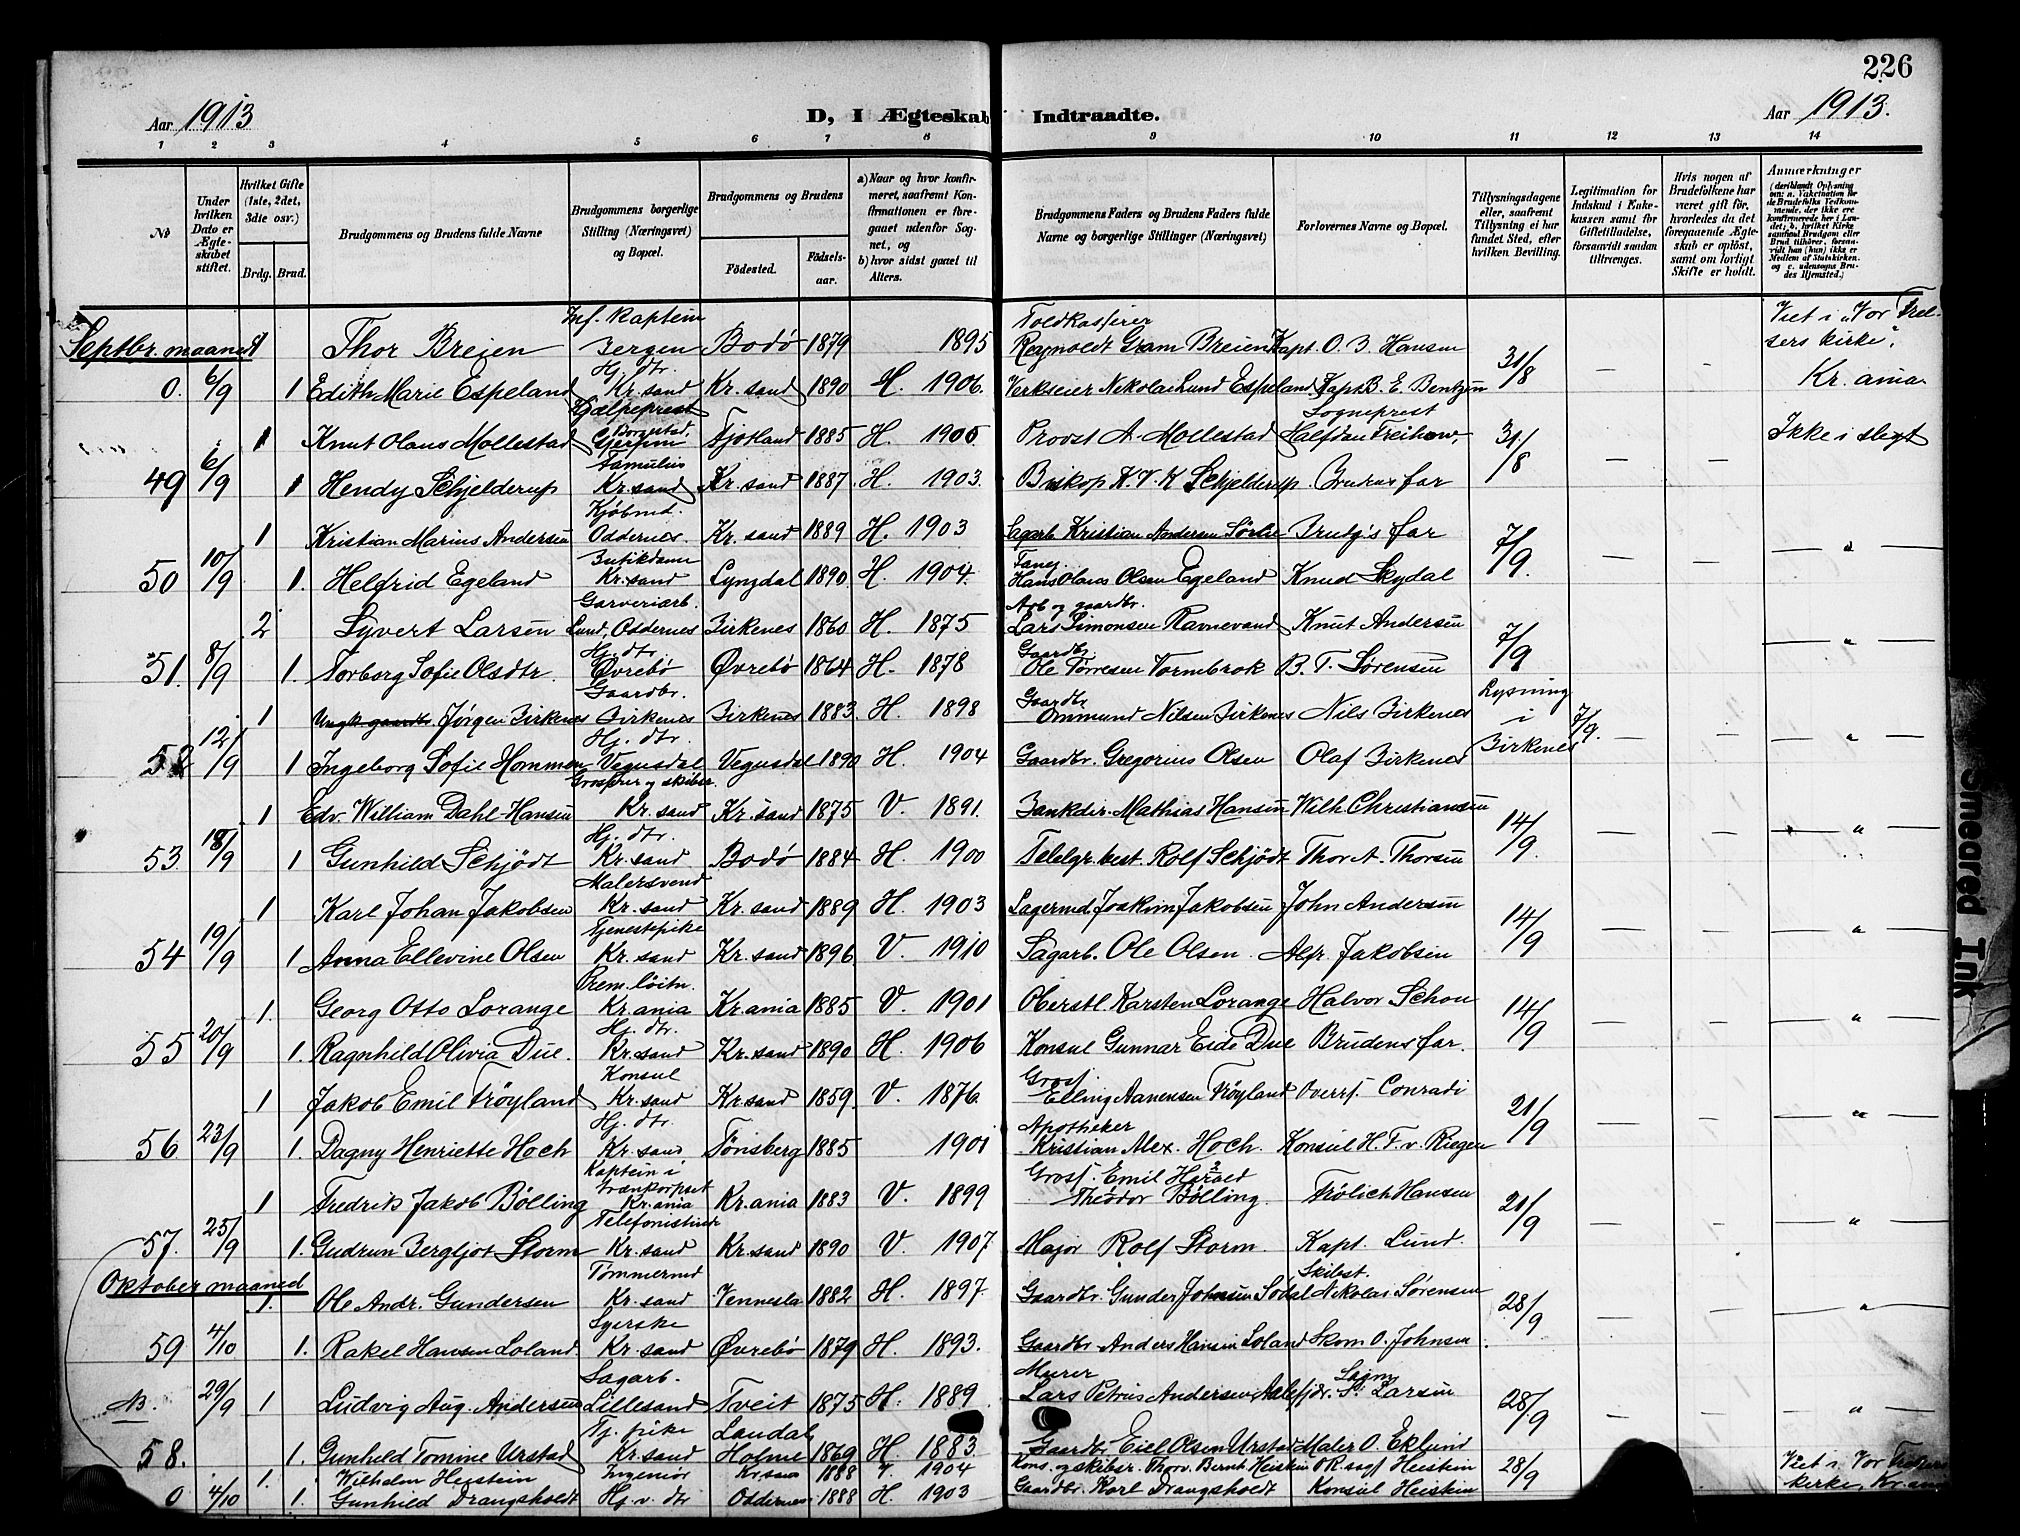 226
Aar 1913
D, I Ægteskab Indtraadte.
Aar 1913.
1 2 3 4 5 6 7 8 9 10 11 12 13 14
No
Under hvilken Dato er Ægteskabet stiftet.
Hvilket Gifte (1ste, 2det, 3die osv.)
Brdg. Brud.
Brudgommens og Brudens fulde Navne
Brudgommens borgerlige Stilling (Næringsvei) og Bopæl.
Brudgommens og Brudens
Fødested.
Fødselsaar.
a) Naar og hvor konfirmeret, saafremt Konfirmationen er foregaaet udenfor Sognet, og
b) hvor sidst gaaet til Alters.
Brudgommens Faders og Brudens Faders fulde Navne og borgerlige Stillinger (Næringsvei)
Forlovernes Navne og Bopæl.
Tillysningsdagene eller, saafremt Tillysning ei har fundet Sted, efter hvilken Bevilling.
Legitimation for Indskud i Enkekassen samt for Giftetilladelse, forsaavidt saadan tiltrænges.
Hvis nogen af Brudefolkene har været gift før, hvorledes da det foregaaende Ægteskab er opløst, samt om lovligt Skifte er holdt.
Anmærkninger
(deriblandt Oplysning om: a. Vakcination for de Brudefolks Vedkommende, der ikke ere konfirmerede her i Landet; b. hvilket Kirkesamfund Brudgom eller Brud tilhører, forsaavidt han (hun) ikke er Medlem af Statskirken, og c. udensogns Brudes Hjemsted.)
Inf. Kaptein Toldkasserer Viet i "Vor Frel-
Septbr. maaned 1 Thor Breien Bergen Bodö 1879 1895 Reynoldt Gram Breien Kapt. O. B. Hansen 31/8 sers kirke",
Hj. dtr.
0. 6/9 1 Edith Marie Espeland Kr. sand Kr. sand 1890 H. 1906. Verkseier Nikolai Lund Espeland Kapt. B. E. Bentzen — — Kr. ania.
Hjælpeprest Sogneprest
Borgestad,
1 Knut Olaus Mollestad Gjerpen Fjotland 1885 H. 1900 Provst A. Mollestad Halfdan Freihow, 31/8 Ikke i slegt
49 6/9 1 Hendy Schjelderup Kr. sand Kr. sand 1887 H. 1903. Biskop K. V. K Schjelderup Brudens far — —
Kjöbmd.
1 Kristian Marius Andersen Oddernes. Kr. sand 1889 H. 1903 Sagarb. Kristian Andersen Sörlie Brudg's far 7/9
Butikdame Fang.
50 10/9 1. Helfrid Egeland Kr. sand Lyngdal 1890 H. 1904. Hans Olaus Olsen Egeland Knud Skydal — — — " —
Garveriarb. Arb og gaardbr.
2 Syvert Larsen Lund, Oddernes Birkenes 1860 H. 1875 Lars Simonsen Ravnevand Knut Andersen 7/9
Hj. dtr. Gaardbr.
51. 8/9 1. Torborg Sofie Olsdtr. Øvrebö Øvrebö 1864 H. 1878 Ole Törresen Vormbrok B. T. Sörensen — " —
Gaardbr. Gaardbr. Lysning
1 Jörgen Birkenes Birkenes Birkenes 1883. H. 1898 Ommund Nilsen Birkenes Nils Birkenes i 7/9.
Hj. dtr.
52 12/9 1 Ingeborg Sofie Hommen Vegusdal Vegusdal 1890 H. 1904 Gaardbr. Gregorius Olsen Olaf Birkenes Birkenes — " —
Grosserer og skibsr.
1 Edv. William Dahl-Hansen Kr. sand Kr. sand 1875 V. 1891. Bankdir. Mathias Hansen Wilh Christiansen 14/9
Hj. dtr.
53. 18/9 1 Gunhild Schjödt Kr. sand Bodö 1884 H. 1900 Telegr. best. Rolf Schjödt Thor A. Thorsen — — — " —
Malersvend
1 Karl Johan Jakobsen Kr. sand Kr. sand 1889 H. 1903 Sagermd. Joakim Jakobsen John Andersen 14/9
Tjenestepike
54 19/9 1 Anna Ellevine Olsen Kr. sand Kr. sand 1896 V. 1910 Sagarb. Ole Olsen. Alfr. Jakobsen — — — " —
Prem. löitn.
1. Georg Otto Lorange Kr. ania Kr. ania 1885 V. 1901 Oberstl. Karsten Lorange Halvor Schou 14/9
Hj. dtr.
55 20/9 1. Ragnhild Olivia Due. Kr. sand Kr. sand 1890 H. 1906 Konsul Gunnar Eide Due Brudens far. — — — " —
Konsul Gross.
1 Jakob Emil Fröyland Kr. sand Kr. sand 1859. V. 1876. Elling Aanensen Fröyland Overrs. Conradi 21/9
Hj. dtr. Apotheker
56 23/9 1. Dagny Henriette Hoch Kr. sand Tönsberg 1885 1901 Kristian Alex. Hoch. Konsul H. F. v. Riegen — — — " —
Kaptein i Grænkorpset Gross. Emil Harald
1 Fredrik Jakob Bölling Kr. ania Kr. ania 1883 V. 1899 Theodor Bölling. Frölich Hansen 21/9
Telefonistinde
57. 25/9 1. Gudrun Bergljot Storm Kr. sand Kr. sand 1890 V. 1907 Major Rolf Storm. Kapt. Lund. — — — " —
Oktober maaned Tömmermd Skibst.
1. Ole Andr. Gundersen Kr. sand Vennesla 1882 H. 1897. Gaardbr. Gunder Johnsen Södal Nikolai Sörensen 28/9
Syerske
59 4/10 1. Rakel Hansen Loland Kr. sand Øvrebö 1879 H. 1893. Gaardbr. Anders Hansen Loland Skom. O. Johnsen — — " —
Sagarb. Murer Sagm
NB. 29/9 1 Ludvig Aug. Andersen Lillesand Tveit 1875 H. 1889 Lars Petrus Andersen Larsen 28/9
Tj. pike Laudal
58. 1. Gunhild Tomine Urstad Kr. sand Holme 1869 H. 1883 Gaardbr Eiel Olsen Urstad Maler O. Eklund — — — " —
1. Wilhelm Heistein Ingeniör Kr. sand 1888 V. 1904 Kons. og skibsr. Thorv. Bernh Heistein OR. sagf Heistein 28/9 Viet i Vor Frelsers
0 4/10 1. Gunhild Drangsholdt Hj. v. dtr Oddernes 1888 H. 1903 Gaardbr Karl Drangsholdt Konsul Heistein kirke, Kr. ania
Smeared Ink